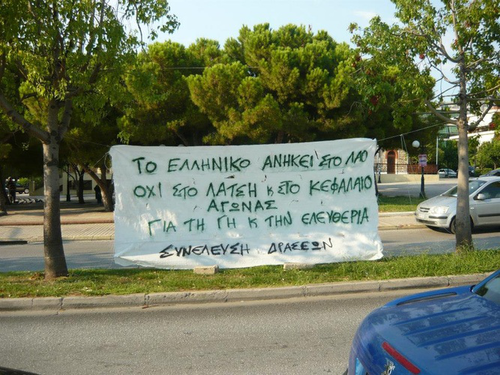 ΤΟ ΕΛΛΗΝΙΚΟ ΑΝΗΚΕΙ ΣΤΟ ΛΑΟ
ΟΧΙ ΣΤΟ ΛΑΤΣΗ Κ ΣΤΟ ΚΕΦΑΛΑΙΟ
ΑΓΩΝΑΣ
ΓΙΑ ΤΗ ΓΗ Κ ΤΗΝ ΕΛΕΥΘΕΡΙΑ
ΣΥΝΕΛΕΥΣΗ ΔΡΑΣΕΩΝ